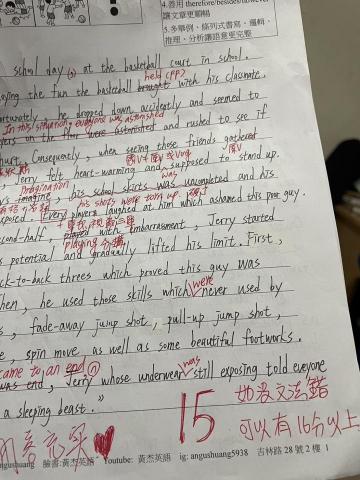 4.善用 therefore/besides/however
讓文章更順暢
5.多舉例、條列式書寫、邏輯、
推理、分析讓語意更完整
school day (,) at the basketball court in school.
held (PP)
oying the fun the basketball brought with his classmate.
ortunately, he dropped down accidently and seemed to
In this situation, everyone was astonished
yers on the were astonished and rushed to see if
hurt. Consequently, when seeing those friends gathered
, Jerry felt heart-warming and supposed to stand up.
imagine, his school skirts was uncompleted and his
his shorts were torn up.
xposed. Every players laughed at him which ashamed this poor guy.
econd-half, played with embarrassment, Jerry started
playing 分構
s potential and gradually lifted his limit. First,
ck-to-back threes which proved this guy was
were
hen, he used those skills which never used by
s, fade-away jump shot, pull-up jump shot,
e, spin move as well as some beautiful footworks.
came to an end
was
was end, Jerry whose underwear still exposing told everyone
a sleeping beast."
15
如沒文法錯
可以有16分以上
angushuang 臉書:黃杰英語 Youtube: 黃杰英語 ig: angushuang5938 吉林路 28 號 2 樓 1